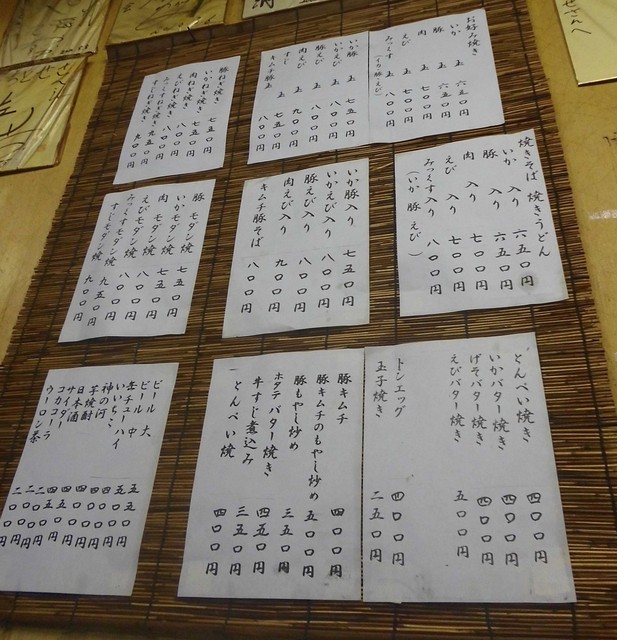 お好み焼き
いか 玉 六五〇円
豚 玉 六五〇円
肉 玉 七〇〇円
えび 玉 七〇〇円
みっくす(イカ豚えび) 玉 八〇〇円
いか豚 玉 七五〇円
いかえび 玉 八〇〇円
豚えび 玉 八〇〇円
肉えび 玉 九〇〇円
すじ 玉 八〇〇円
キムチ豚玉 八〇〇円
豚ねぎ焼き 七五〇円
いかねぎ焼き 七五〇円
肉ねぎ焼き 八〇〇円
えびねぎ焼き 八〇〇円
みっくすねぎ焼き 九五〇円
すじねぎ焼き 九〇〇円
焼きそば 焼きうどん
いか 入り 六五〇円
豚 入り 六五〇円
肉 入り 七〇〇円
えび 入り 七〇〇円
みっくす入り 八〇〇円
(いか 豚 えび)
いか豚入り 七五〇円
いかえび入り 八〇〇円
豚えび入り 八〇〇円
肉えび入り 九〇〇円
キムチ豚そば 八〇〇円
豚 モダン焼 七五〇円
いか モダン焼 七五〇円
肉 モダン焼 八〇〇円
えびモダン焼 八〇〇円
みっくすモダン焼 九五〇円
すじモダン焼 九〇〇円
とんぺい焼き 四〇〇円
いかバター焼き 四〇〇円
げそバター焼き 四〇〇円
えびバター焼き 五〇〇円
トンエッグ 四〇〇円
玉子焼き 二五〇円
豚キムチ 四〇〇円
豚キムチのもやし炒め 五〇〇円
豚もやし炒め 三五〇円
ホタテバター焼き 四五〇円
牛すじ煮込み 三五〇円
とんぺい焼 四〇〇円
ビール 大 五五〇円
ビール 中 五〇〇円
チューハイ
いいちこ
神の河
芋焼酎
日本酒
サイダー
コカコーラ 二〇〇円
ウーロン茶 二〇〇円